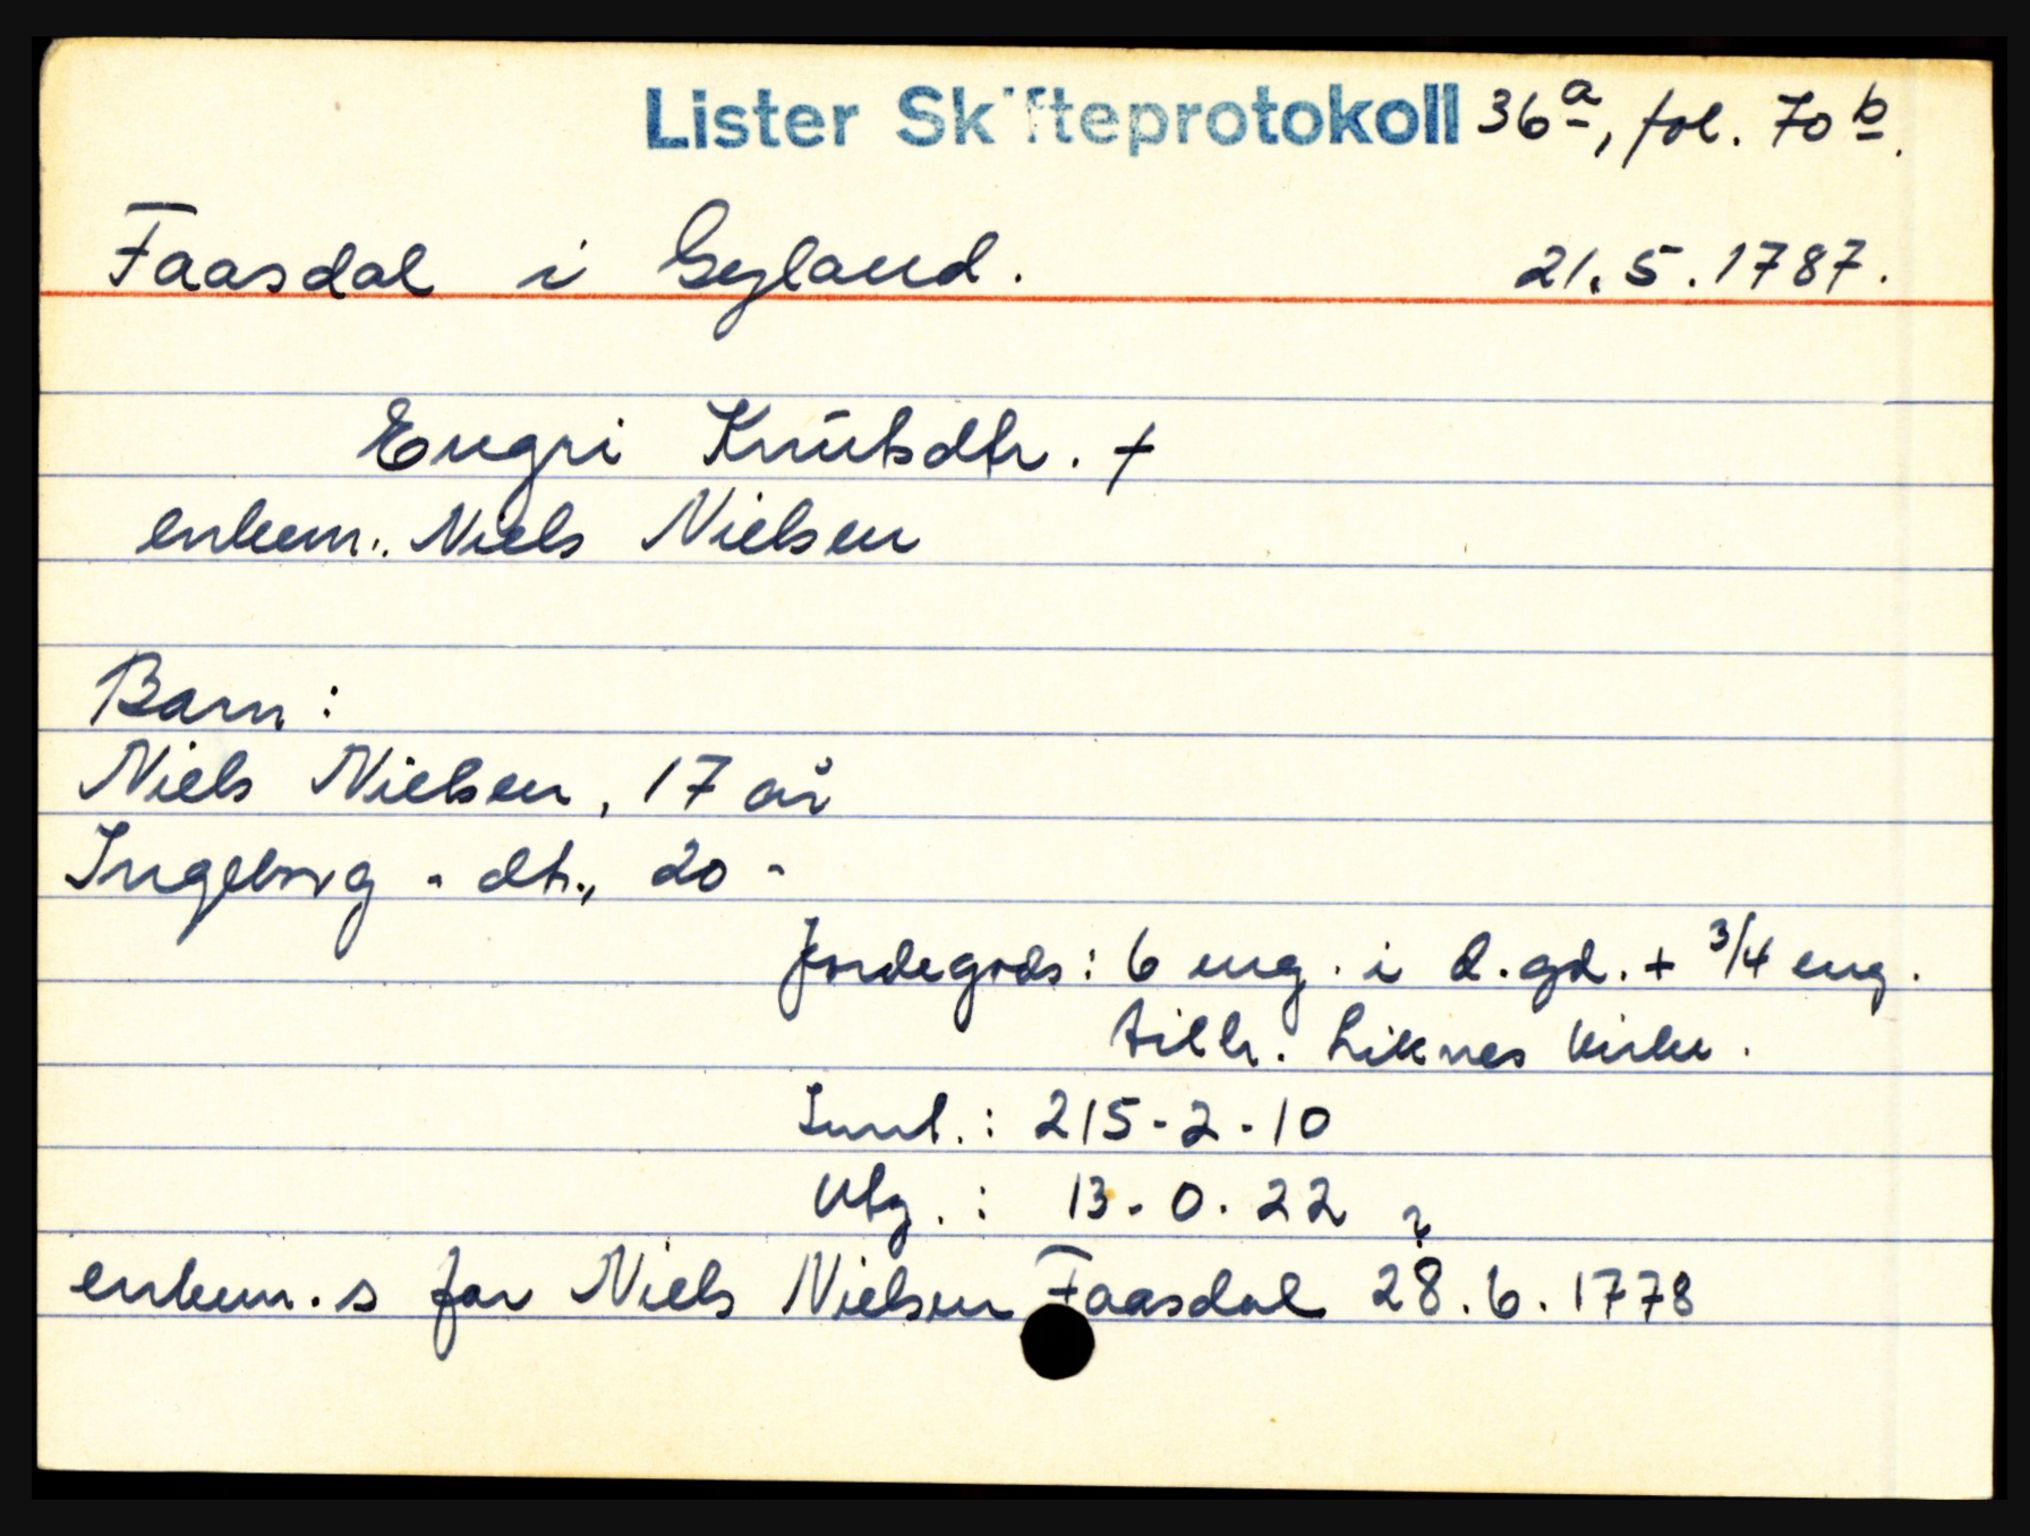 Lister Skifteprotokoll 36a, fol. 70b.
Faasdal i Gyland. 21.5.1787.
Engri Knutsdtr. +
enkem. Niels Nielsen
Barn:
Niels Nielsen, 17 år
Ingeborg - dtr., 20 -
Jordegods: 6 eng. i d. gd. + 3/4 eng.
tilh. Liknes kirke.
Innt.: 215-2-10
Utg.: 13-0-22
enkem.s far Niels Nielsen Faasdal 28?.6.1778